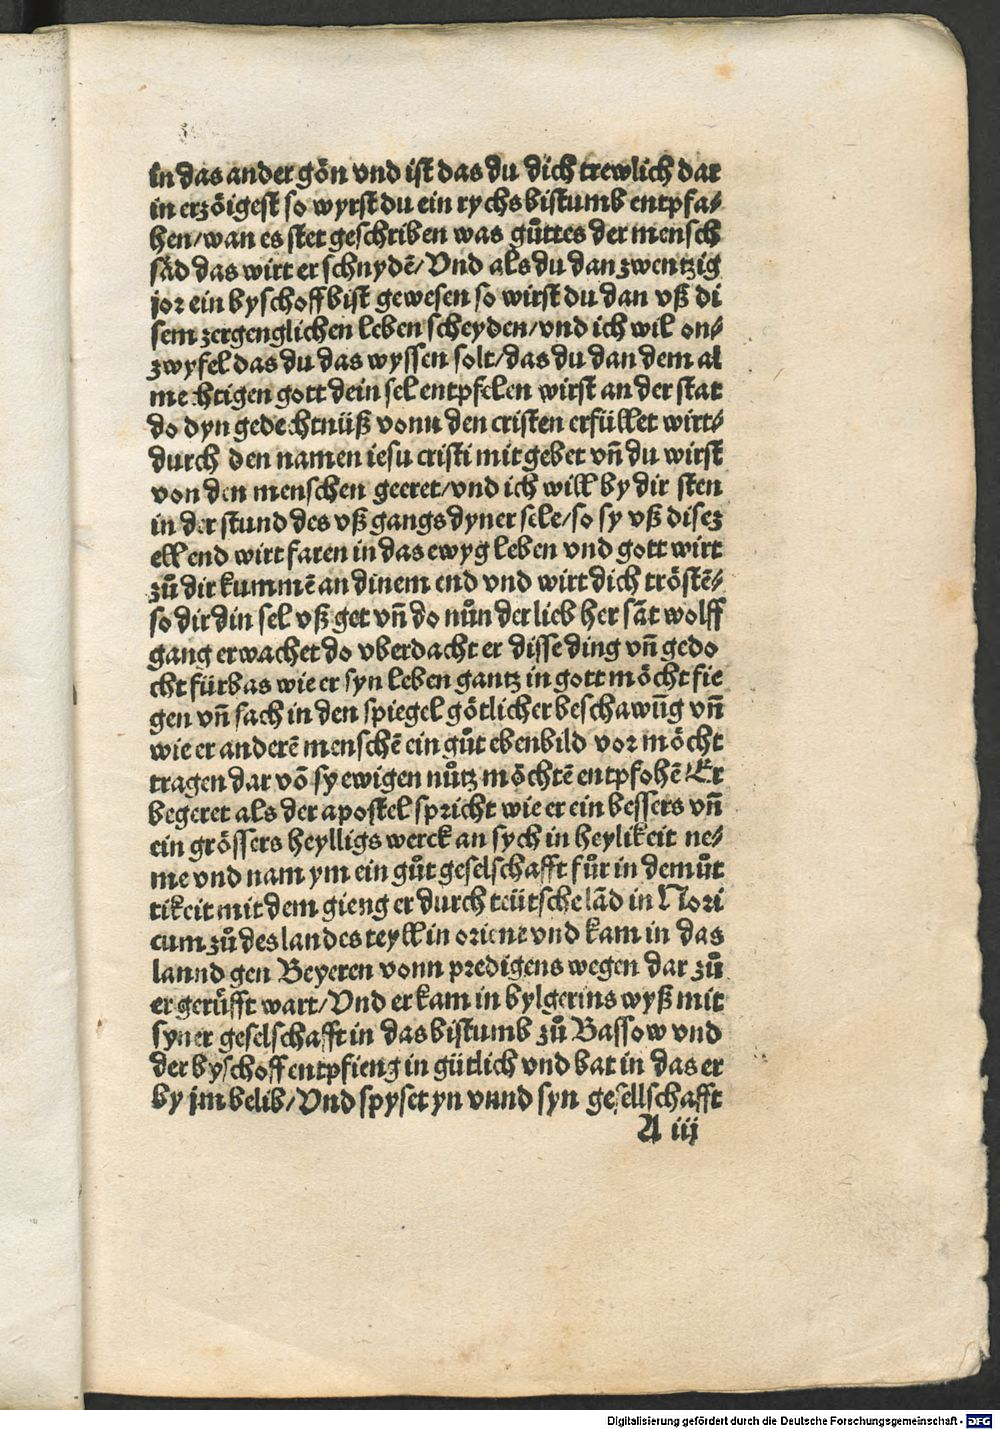 in das ander gön vnd ist das du dich trewlich dar
in erzöigest so wyrst du ein rychs bistumb entpfa-
hen/wan es stet geschriben was gůttes der mensch
säd das wirt er schnydē/Vnd als du dan zwentzig
jor ein byschoff bist gewesen so wirst du dan vß di
sem zergenglichen leben scheyden/vnd ich wil on-
zwyfel das du das wyssen solt/das du dan dem al
mechtigen gott dein sel entpfelen wirst an der stat
do dyn gedechtnüß vonn den cristen erfüllet wirt-
durch den namen iesu cristi mit gebet vñ du wirst
von den menschen geeret/vnd ich will by dir sten
in der stund des vß gangs dyner sele/so sy vß disez
ellend wirt faren in das ewyg leben vnd gott wirt
zů dir kummē an dinem end vnd wirt dich tröstē-
so dir din sel vß get vñ do nůn der lieb her sāt wolff
gang erwachet do vberdacht er disse ding vñ gedo
cht fürbas wie er syn leben gantz in gott möcht fie
gen vñ sach in den spiegel götlicher beschawūg vñ
wie er anderē menschē ein gůt ebenbild vor möcht
tragen dar vō sy ewigen nůtz möchtē entpfohē/Er
begeret als der apostel spricht wie er ein bessers vñ
ein grössers heylligs werck an sych in heylikeit ne-
me vnd nam ym ein gůt geselschafft fůr in demůt
tikeit mit dem gieng er durch teütsche lād in Nori
cum zů des landes teyll in orient vnd kam in das
lannd gen Beyeren vonn predigens wegen dar zů
er gerůfft wart/Vnd er kam in bylgerins wyß mit
syner geselschafft in das bistumb zů Bassow vnd
der byschoff entpfieng in gütlich vnd bat in das er
by jm belib/Vnd spyset yn vnnd syn gesellschafft
A iij
Digitalisierung gefördert durch die Deutsche Forschungsgemeinschaft - DFG